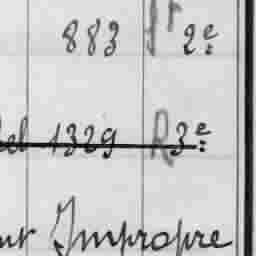 883 ft 2e
el 1329 R3e
Impropre